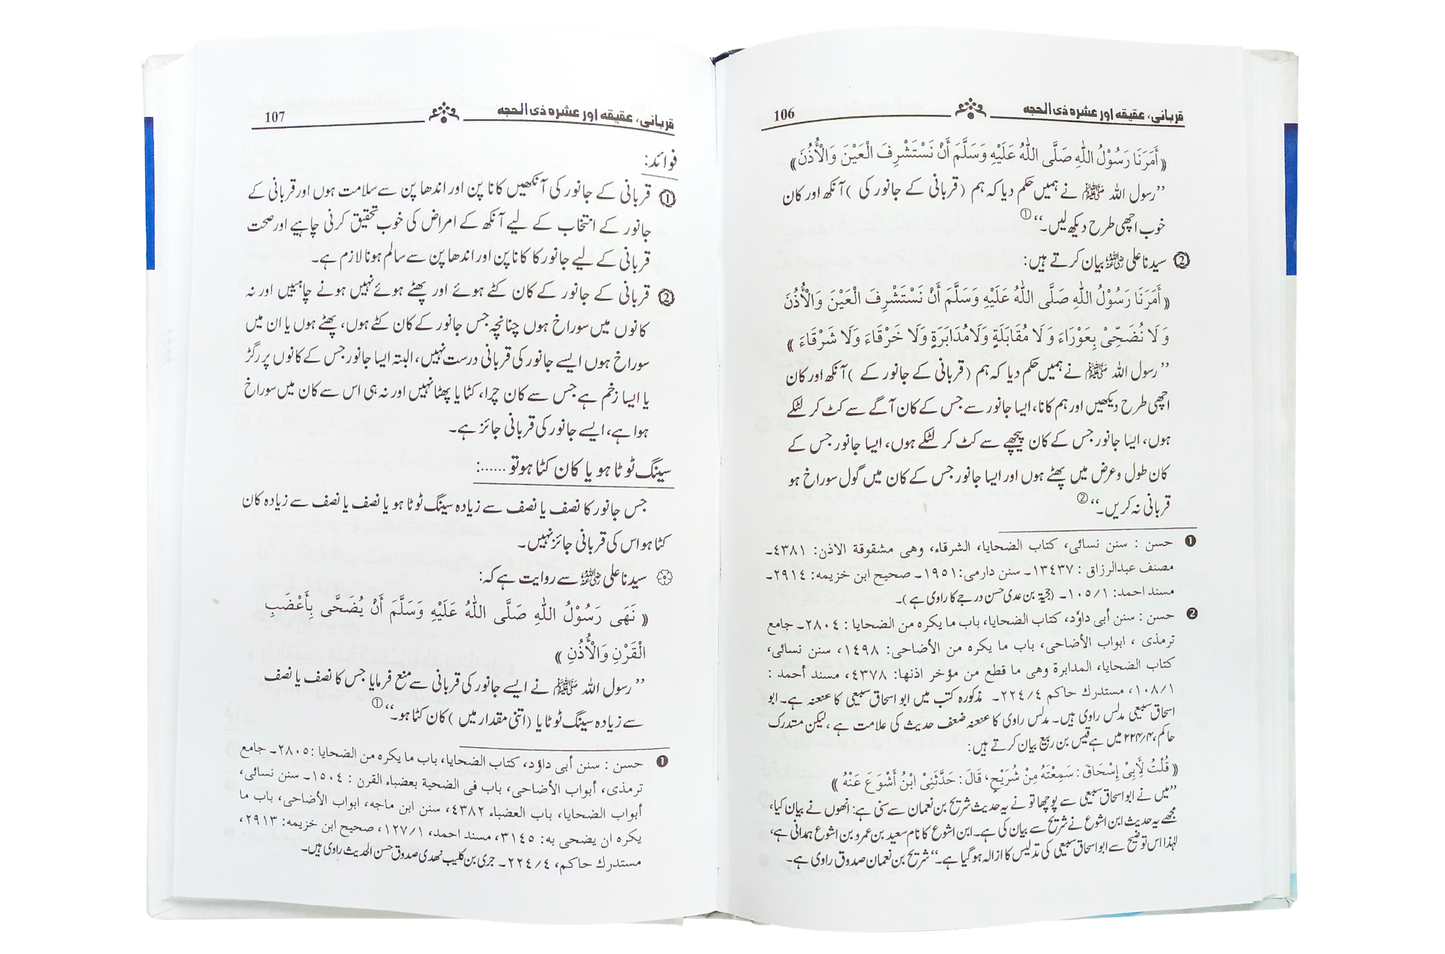 قربانی، عقیقہ اور عشرہ ذی الحجہ 106
﴿أَمَرَنَا رَسُوْلُ اللهِ صَلَّى اللهُ عَلَيْهِ وَسَلَّمَ أَنْ نَسْتَشْرِفَ الْعَيْنَ وَالْأُذُنَ﴾
’’رسول اللہ ﷺ نے ہمیں حکم دیا کہ ہم (قربانی کے جانور کی) آنکھ اور کان
خوب اچھی طرح دیکھ لیں۔‘‘ ①
② سیدنا علی رضی اللہ عنہ بیان کرتے ہیں:
﴿أَمَرَنَا رَسُوْلُ اللهِ صَلَّى اللهُ عَلَيْهِ وَسَلَّمَ أَنْ نَسْتَشْرِفَ الْعَيْنَ وَالْأُذُنَ
وَلَا نُضَحِّىْ بِعَوْرَاءَ وَلَا مُقَابَلَةٍ وَلَا مُدَابَرَةٍ وَلَا خَرْقَاءَ وَلَا شَرْقَاءَ﴾
’’رسول اللہ ﷺ نے ہمیں حکم دیا کہ ہم (قربانی کے جانور کے) آنکھ اور کان
اچھی طرح دیکھیں اور ہم کانا، ایسا جانور سے جس کے کان آگے سے کٹ کر لٹکے
ہوں، ایسا جانور جس کے کان پیچھے سے کٹ کر لٹکے ہوں، ایسا جانور جس کے
کان طول وعرض میں پھٹے ہوں اور ایسا جانور جس کے کان میں گول سوراخ ہو
قربانی نہ کریں۔‘‘ ②
❶ حسن : سنن نسائی، کتاب الضحایا، الشرقاء، وھی مشقوقة الاذن: ٤٣٨١۔
مصنف عبدالرزاق : ١٣٤٣٧۔ سنن دارمی: ١٩٥١۔ صحیح ابن خزیمه: ٢٩١٤۔
مسند احمد: ١/١٠٥۔ (حجیۃ بن عدی حسن درجے کا راوی ہے)۔
❷ حسن : سنن أبی داؤد، کتاب الضحایا، باب ما یکره من الضحایا : ٢٨٠٤۔ جامع
ترمذی ، ابواب الأضاحی، باب ما یکره من الأضاحی: ١٤٩٨، سنن نسائی،
کتاب الضحایا، المدابرة وھی ما قطع من مؤخر اذنها: ٤٣٧٨، مسند أحمد :
١/١٠٨، مستدرك حاکم ٤/٢٢٤۔ مذکورہ کتب میں ابو اسحاق سبیعی کا عنعنہ ہے۔ ابو
اسحاق سبیعی مدلس راوی ہیں۔ مدلس راوی کا عنعنہ ضعف حدیث کی علامت ہے، لیکن متدرک
حاکم، ۲۲۴/۴ میں ہے قیس بن ربیع بیان کرتے ہیں:
﴿قُلْتُ لِأَبِیْ إِسْحَاقَ : سَمِعْتَهُ مِنْ شُرَيْحٍ، قَالَ : حَدَّثَنِیْ ابْنُ أَشْوَعَ عَنْهُ﴾
’’میں نے ابو اسحاق سبیعی سے پوچھا تو نے یہ حدیث شریح بن نعمان سے سنی ہے: انھوں نے بیان کیا،
مجھے یہ حدیث ابن اشوع نے شریح سے بیان کی ہے۔ ابن اشوع کا نام سعید بن عمرو بن اشوع ہمدانی ہے،
لہٰذا اس توضیح سے ابو اسحاق سبیعی کی تدلیس کا ازالہ ہو گیا ہے۔‘‘ شریح بن نعمان صدوق راوی ہے۔
قربانی، عقیقہ اور عشرہ ذی الحجہ 107
فوائد:
① قربانی کے جانور کی آنکھیں کانا پن اور اندھا پن سے سلامت ہوں اور قربانی کے
جانور کے انتخاب کے لیے آنکھ کے امراض کی خوب تحقیق کرنی چاہیے اور صحت
قربانی کے لیے جانور کا کانا پن اور اندھا پن سے سالم ہونا لازم ہے۔
② قربانی کے جانور کے کان کٹے ہوئے اور پھٹے ہوئے نہیں ہونے چاہییں اور نہ
کانوں میں سوراخ ہوں چنانچہ جس جانور کے کان کٹے ہوں، پھٹے ہوں یا ان میں
سوراخ ہوں ایسے جانور کی قربانی درست نہیں، البتہ ایسا جانور جس کے کانوں پر رگڑ
یا ایسا زخم ہے جس سے کان چرا، کٹا یا پھٹا نہیں اور نہ ہی اس سے کان میں سوراخ
ہوا ہے، ایسے جانور کی قربانی جائز ہے۔
سینگ ٹوٹا ہو یا کان کٹا ہو تو ......:
جس جانور کا نصف یا نصف سے زیادہ سینگ ٹوٹا ہو یا نصف یا نصف سے زیادہ کان
کٹا ہو اس کی قربانی جائز نہیں۔
سیدنا علی رضی اللہ عنہ سے روایت ہے کہ:
﴿نَهَى رَسُوْلُ اللهِ صَلَّى اللهُ عَلَيْهِ وَسَلَّمَ أَنْ يُضَحَّى بِأَعْضَبِ
الْقَرْنِ وَالْأُذُنِ﴾
’’رسول اللہ ﷺ نے ایسے جانور کی قربانی سے منع فرمایا جس کا نصف یا نصف
سے زیادہ سینگ ٹوٹا یا (اتنی مقدار میں) کان کٹا ہو۔‘‘ ①
❶ حسن : سنن أبی داؤد، کتاب الضحایا، باب ما یکره من الضحایا : ٢٨٠٥۔ جامع
ترمذی، أبواب الأضاحی، باب فی الضحیة بعضباء القرن : ١٥٠٤۔ سنن نسائی،
أبواب الضحایا، باب العضباء ٤٣٨٢، سنن ابن ماجه، ابواب الأضاحی، باب ما
یکره ان یضحی به: ٣١٤٥، مسند احمد، ١/١٢٧، صحیح ابن خزیمه: ٢٩١٣،
مستدرك حاکم، ٤/٢٢٤۔ جری بن کلیب نہدی صدوق حسن الحدیث راوی ہیں۔